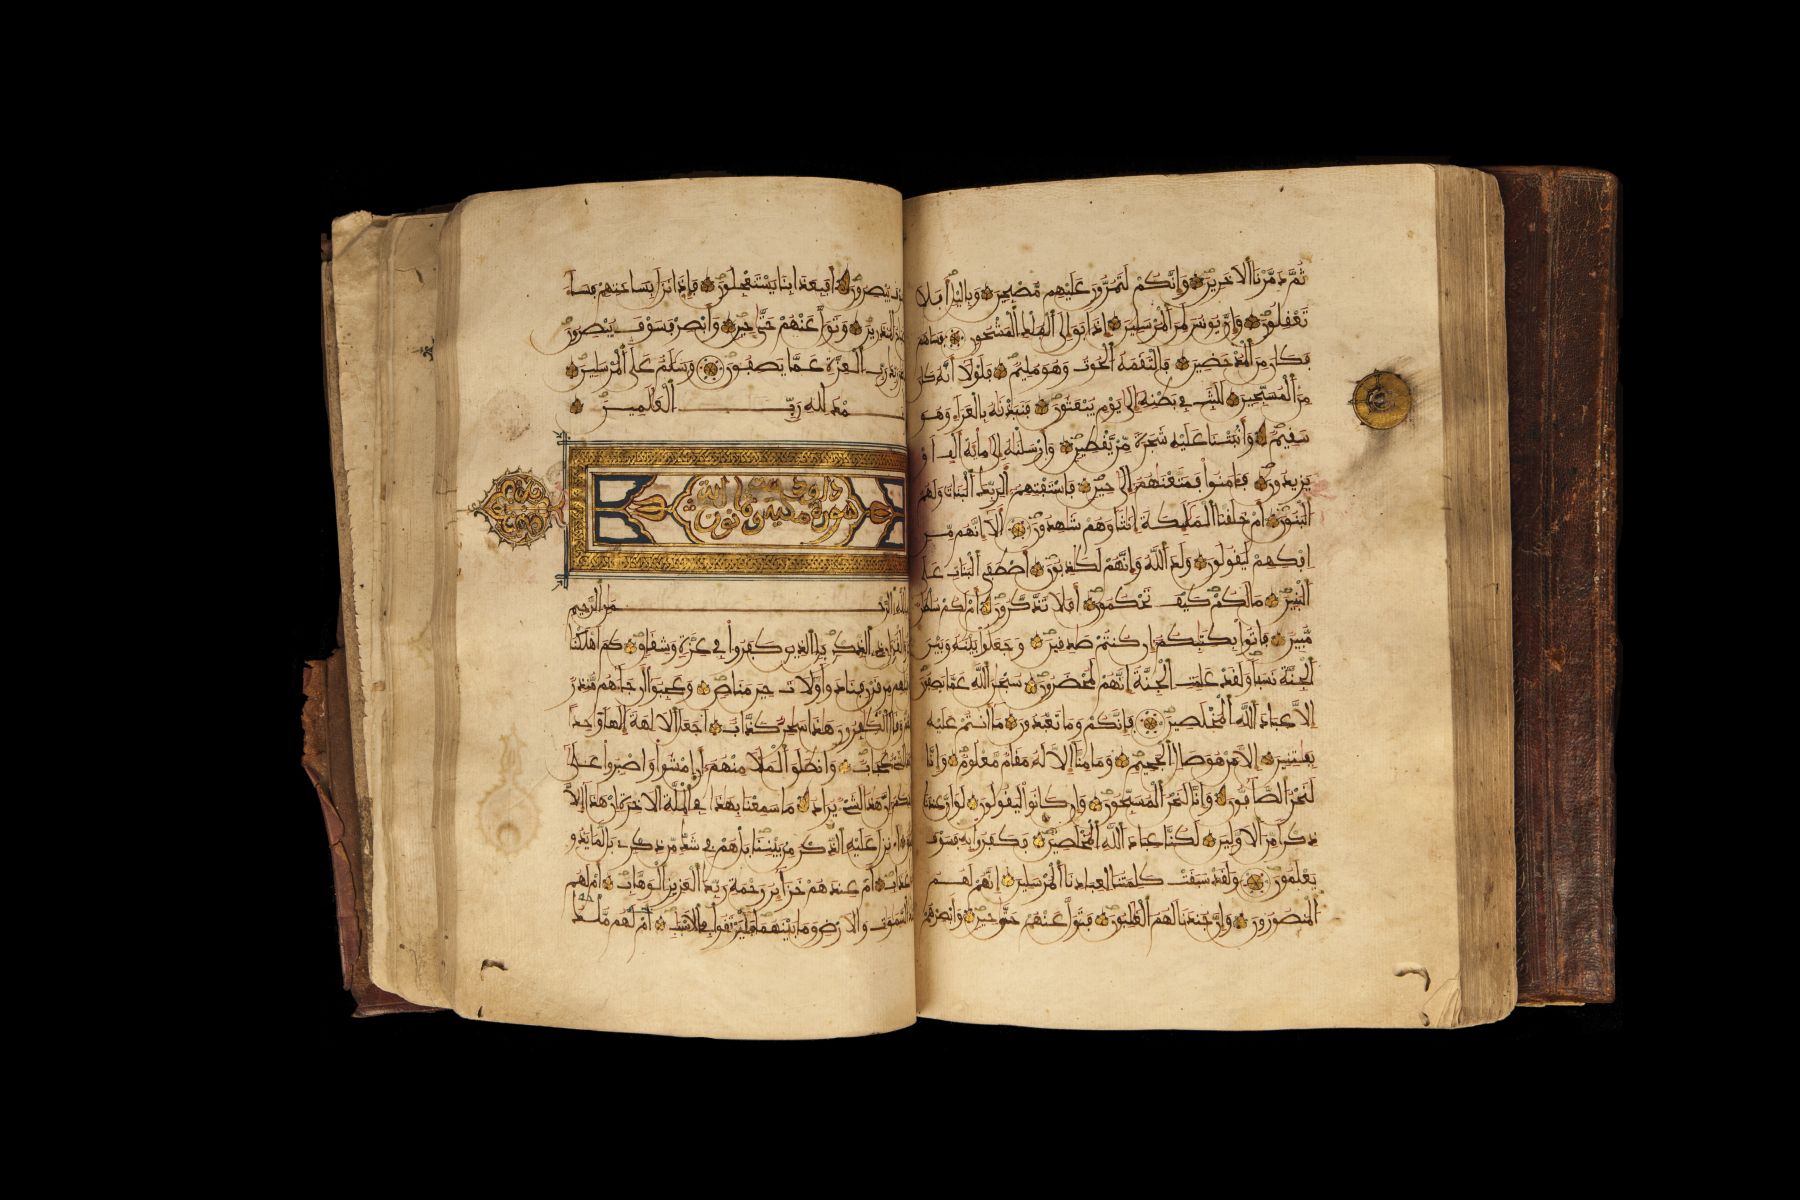 ثُمَّ دَمَّرْنَا الَاخَرِينَ وَإِنَّكُمْ لَتَمُرُّونَ عَلَيْهِم مُّصْبِحِينَ وَبِاليْلِ أَفَلَا
تَعْقِلُونَ وَإِنَّ يُونُسَ لَمِنَ الْمُرْسَلِينَ إِذَ ابَقَ إِلَى الْفُلْكِ الْمَشْحُونِ فَسَاهَمَ
فَكَانَ مِنَ الْمُدْحَضِينَ فَالْتَقَمَهُ الْحُوتُ وَهُوَ مُلِيمٌ فَلَوْلَا أَنَّهُ كَانَ
مِنَ الْمُسَبِّحِينَ لَلَبِثَ فِي بَطْنِهِ إِلَى يَوْمِ يُبْعَثُونَ فَنَبَذْنَاهُ بِالْعَرَاءِ وَهُوَ
سَقِيمٌ وَأَنْبَتْنَا عَلَيْهِ شَجَرَةً مِّنْ يَّقْطِينٍ وَأَرْسَلْنَاهُ إِلَى مِائَةِ أَلْفٍ أَوْ
يَزِيدُونَ فَـَٔامَنُوا فَمَتَّعْنَاهُمُ إِلَى حِينٍ فَاسْتَفْتِهِمُ أَلِرَبِّكَ الْبَنَاتُ وَلَهُمُ
الْبَنُونَ أَمْ خَلَقْنَا الْمَلَٰٓئِكَةَ إِنَاثًا وَهُمْ شَاهِدُونَ أَلَا إِنَّهُم مِّنِ
افْكِهِمْ لَيَقُولُونَ وَلَدَ اللَّهُ وَإِنَّهُمْ لَكَٰذِبُونَ أَصْطَفَى الْبَنَاتِ عَلَى
الْبَنِينَ مَا لَكُمْ كَيْفَ تَحْكُمُونَ أَفَلَا تَذَّكَّرُونَ أَمْ لَكُمْ سُلْطَٰنٌ
مُّبِينٌ فَاتُوا بِكِتَٰبِكُمُ إِن كُنتُمْ صَٰدِقِينَ وَجَعَلُوا بَيْنَهُ وَبَيْنَ
الْجِنَّةِ نَسَبًا وَلَقَدْ عَلِمَتِ الْجِنَّةُ إِنَّهُمْ لَمُحْضَرُونَ سُبْحَٰنَ اللَّهِ عَمَّا يَصِفُونَ
إِلَّا عِبَادَ اللَّهِ الْمُخْلَصِينَ فَإِنَّكُمْ وَمَا تَعْبُدُونَ مَا أَنتُمْ عَلَيْهِ
بِفَٰتِنِينَ إِلَّا مَنْ هُوَ صَالِ الْجَحِيمِ وَمَا مِنَّا إِلَّا لَهُ مَقَامٌ مَّعْلُومٌ وَإِنَّا
لَنَحْنُ الصَّافُّونَ وَإِنَّا لَنَحْنُ الْمُسَبِّحُونَ وَإِن كَانُوا لَيَقُولُونَ لَوَ انَّ عِندَنَا
ذِكْرًا مِّنَ الَاوَّلِينَ لَكُنَّا عِبَادَ اللَّهِ الْمُخْلَصِينَ فَكَفَرُوا بِهِ فَسَوْفَ
يَعْلَمُونَ وَلَقَدْ سَبَقَتْ كَلِمَتُنَا لِعِبَادِنَا الْمُرْسَلِينَ إِنَّهُمْ لَهُمُ
الْمَنصُورُونَ وَإِنَّ جُندَنَا لَهُمُ الْغَٰلِبُونَ فَتَوَلَّ عَنْهُمْ حَتَّى حِينٍ وَأَبْصِرْهُمْ
يُبْصِرُونَ أَفَبِعَذَابِنَا يَسْتَعْجِلُونَ فَإِذَا نَزَلَ بِسَاحَتِهِمْ فَسَاءَ
الْمُنذَرِينَ وَتَوَلَّ عَنْهُمْ حَتَّى حِينٍ وَأَبْصِرْ فَسَوْفَ يُبْصِرُونَ
رَبِّ الْعِزَّةِ عَمَّا يَصِفُونَ وَسَلَٰمٌ عَلَى الْمُرْسَلِينَ
لِلَّهِ رَبِّ الْعَٰلَمِينَ
سورة داود مكية وثمانون
الرَّحِيمِ
وَالْقُرْءَانِ ذِي الذِّكْرِ بَلِ الَّذِينَ كَفَرُوا فِي عِزَّةٍ وَشِقَاقٍ كَمَ اهْلَكْنَا
مِن قَرْنٍ فَنَادَوا وَّلَاتَ حِينَ مَنَاصٍ وَعَجِبُوا أَن جَاءَهُم مُّنذِرٌ
وَقَالَ الْكَٰفِرُونَ هَٰذَا سَٰحِرٌ كَذَّابٌ أَجَعَلَ الَالِهَةَ إِلَٰهًا وَٰحِدًا
لَشَيْءٌ عُجَابٌ وَانطَلَقَ الْمَلَأُ مِنْهُمُ أَنِ امْشُوا وَاصْبِرُوا عَلَى
إِنَّ هَٰذَا لَشَيْءٌ يُرَادُ مَا سَمِعْنَا بِهَٰذَا فِي الْمِلَّةِ الَاخِرَةِ إِنْ هَٰذَا إِلَّا
نزِلَ عَلَيْهِ الذِّكْرُ مِن بَيْنِنَا بَلْ هُمْ فِي شَكٍّ مِّن ذِكْرِي بَل لَّمَّا يَذُوقُوا
عَذَابِ أَمْ عِندَهُمْ خَزَائِنُ رَحْمَةِ رَبِّكَ الْعَزِيزِ الْوَهَّابِ أَمْ لَهُم
السَّمَٰوَٰتِ وَالَارْضِ وَمَا بَيْنَهُمَا فَلْيَرْتَقُوا فِي الَاسْبَٰبِ أَمْ لَهُم مُّلْكُ